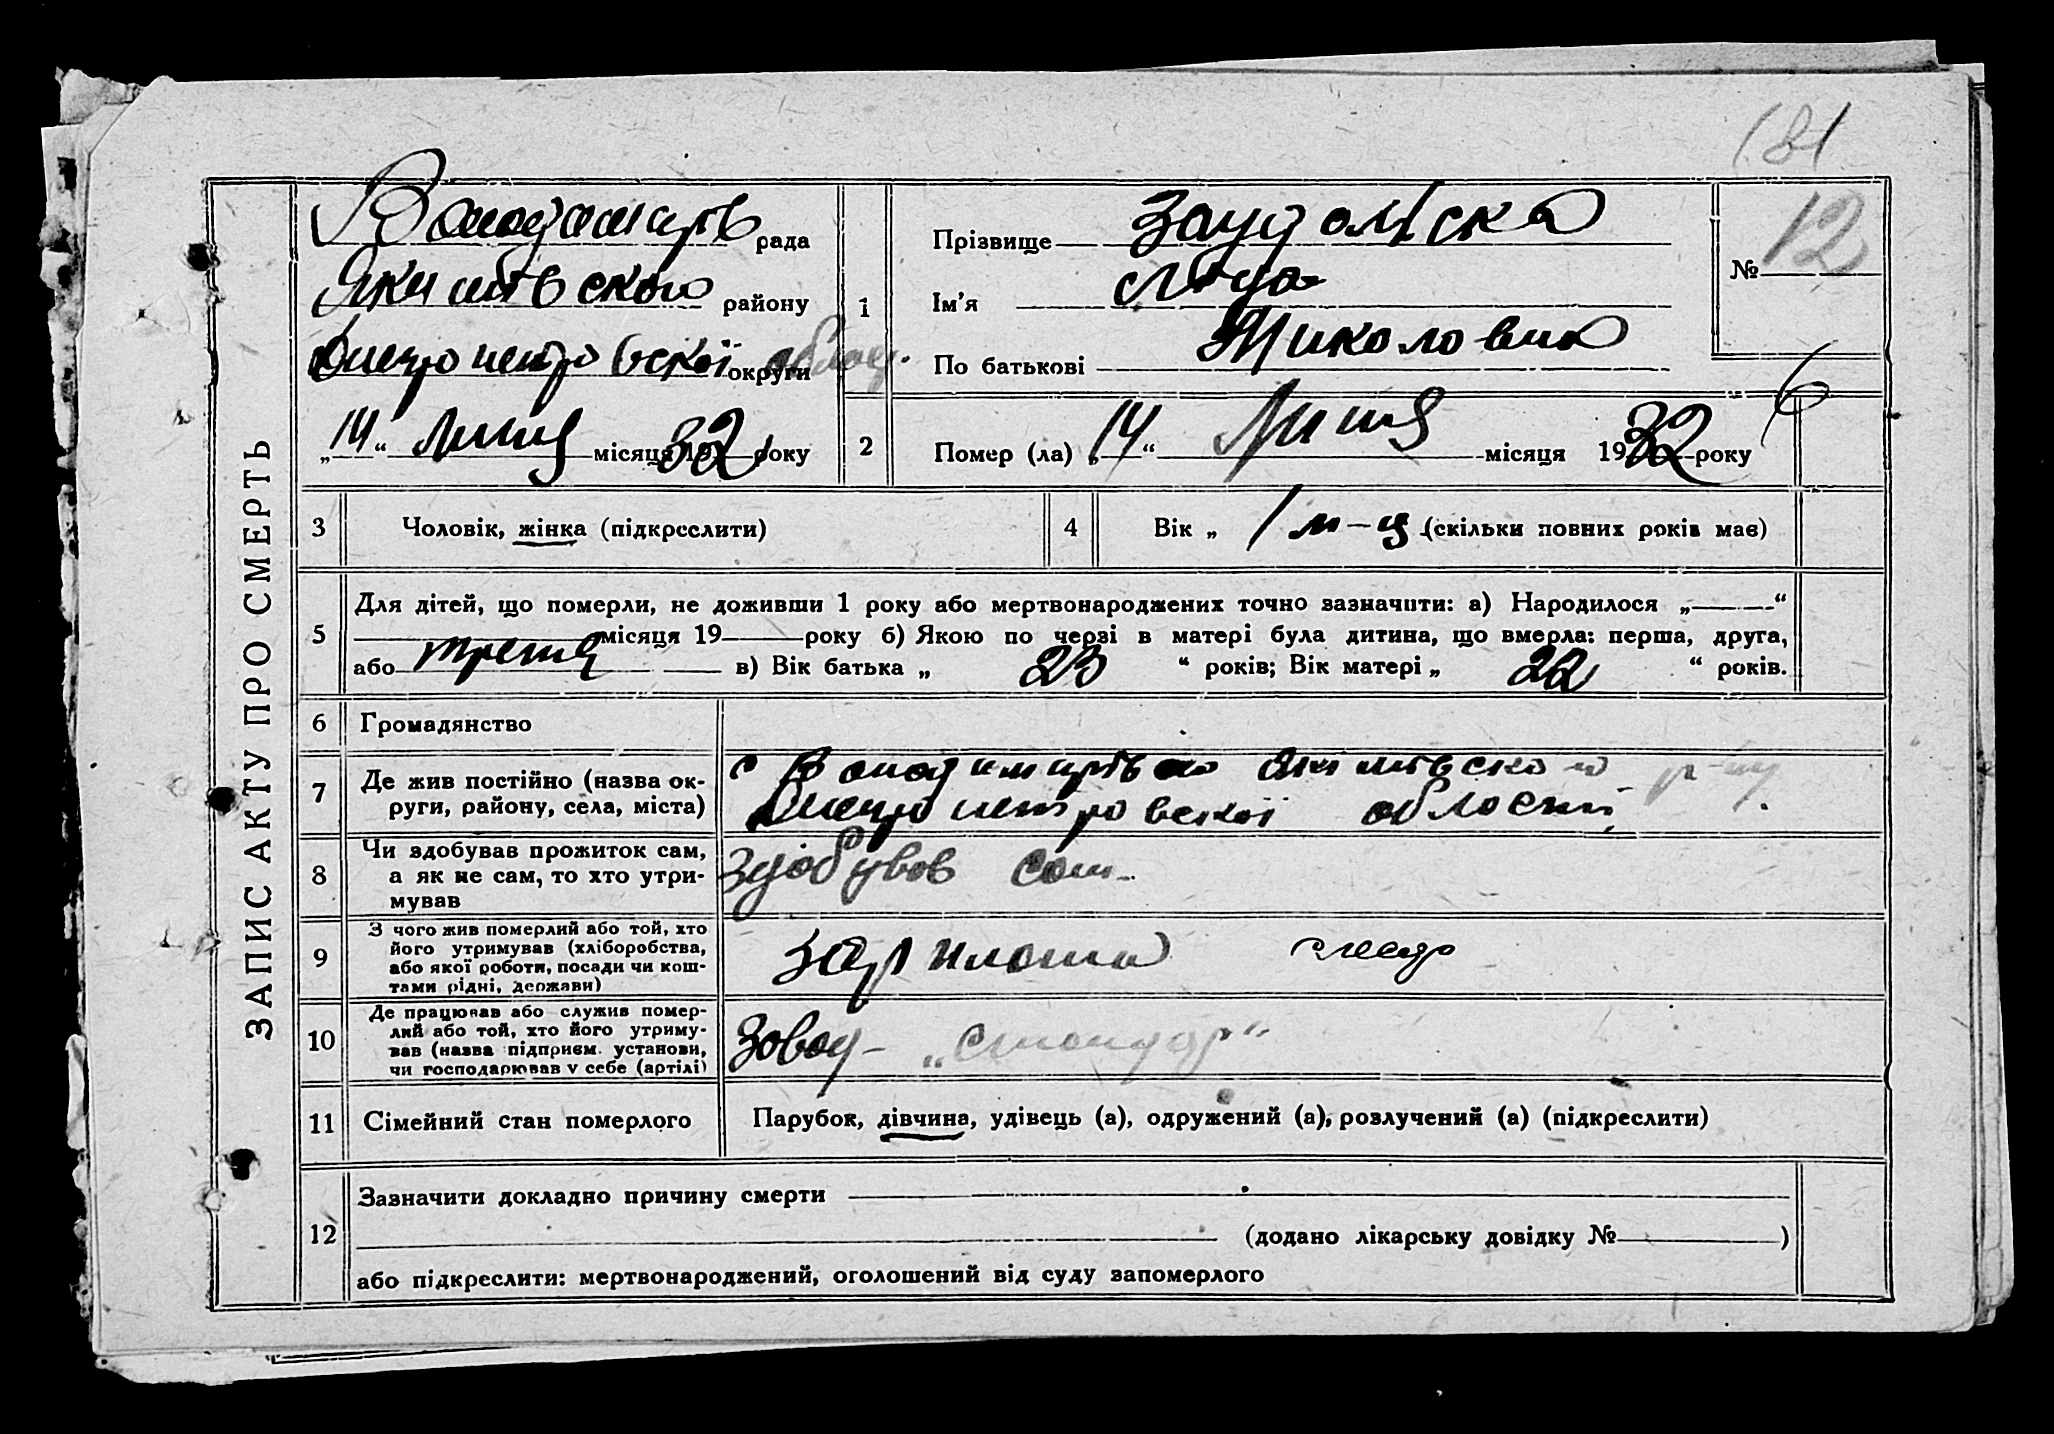 181
ЗАПИС АКТУ ПРО СМЕРТЬ
Володимирів рада
Якимівського району
Днепропетровскої округи област.
„14“ Липня місяця 1932 року
1
Прізвище
Ім'я Ліда
По батькові Миколовна
№ 12
6
2
Помер (ла) „14“ Липня місяця 1932 року
3 Чоловік, жінка (підкреслити)
4 Вік „ 1 м-ц (скільки повних років має)
5 Для дітей, що померли, не доживши 1 року або мертвонароджених точно зазначити: а) Народилося „ “
місяця 19 року б) Якою по черзі в матері була дитина, що вмерла: перша, друга,
або третя в) Вік батька „ 23 “ років; Вік матері „ 22 “ років.
6 Громадянство
7 Де жив постійно (назва округи, району, села, міста)
с Володимирівка Якимівского р-ну
Днепропетровскої области
8 Чи здобував прожиток сам, а як не сам, то хто утримував
Здобував сам
9 З чого жив померлий або той, хто його утримував (хліборобства, або якої роботи, посади чи коштами рідні, держави)
зарплата
10 Де працював або служив померлий або той, хто його утримував (назва підприєм. установи, чи господарював у себе (артілі)
Завод
11 Сімейний стан померлого
Парубок, дівчина, удівець (а), одружений (а), розлучений (а) (підкреслити)
12 Зазначити докладно причину смерти
(додано лікарську довідку № )
або підкреслити: мертвонароджений, оголошений від суду запомерлого